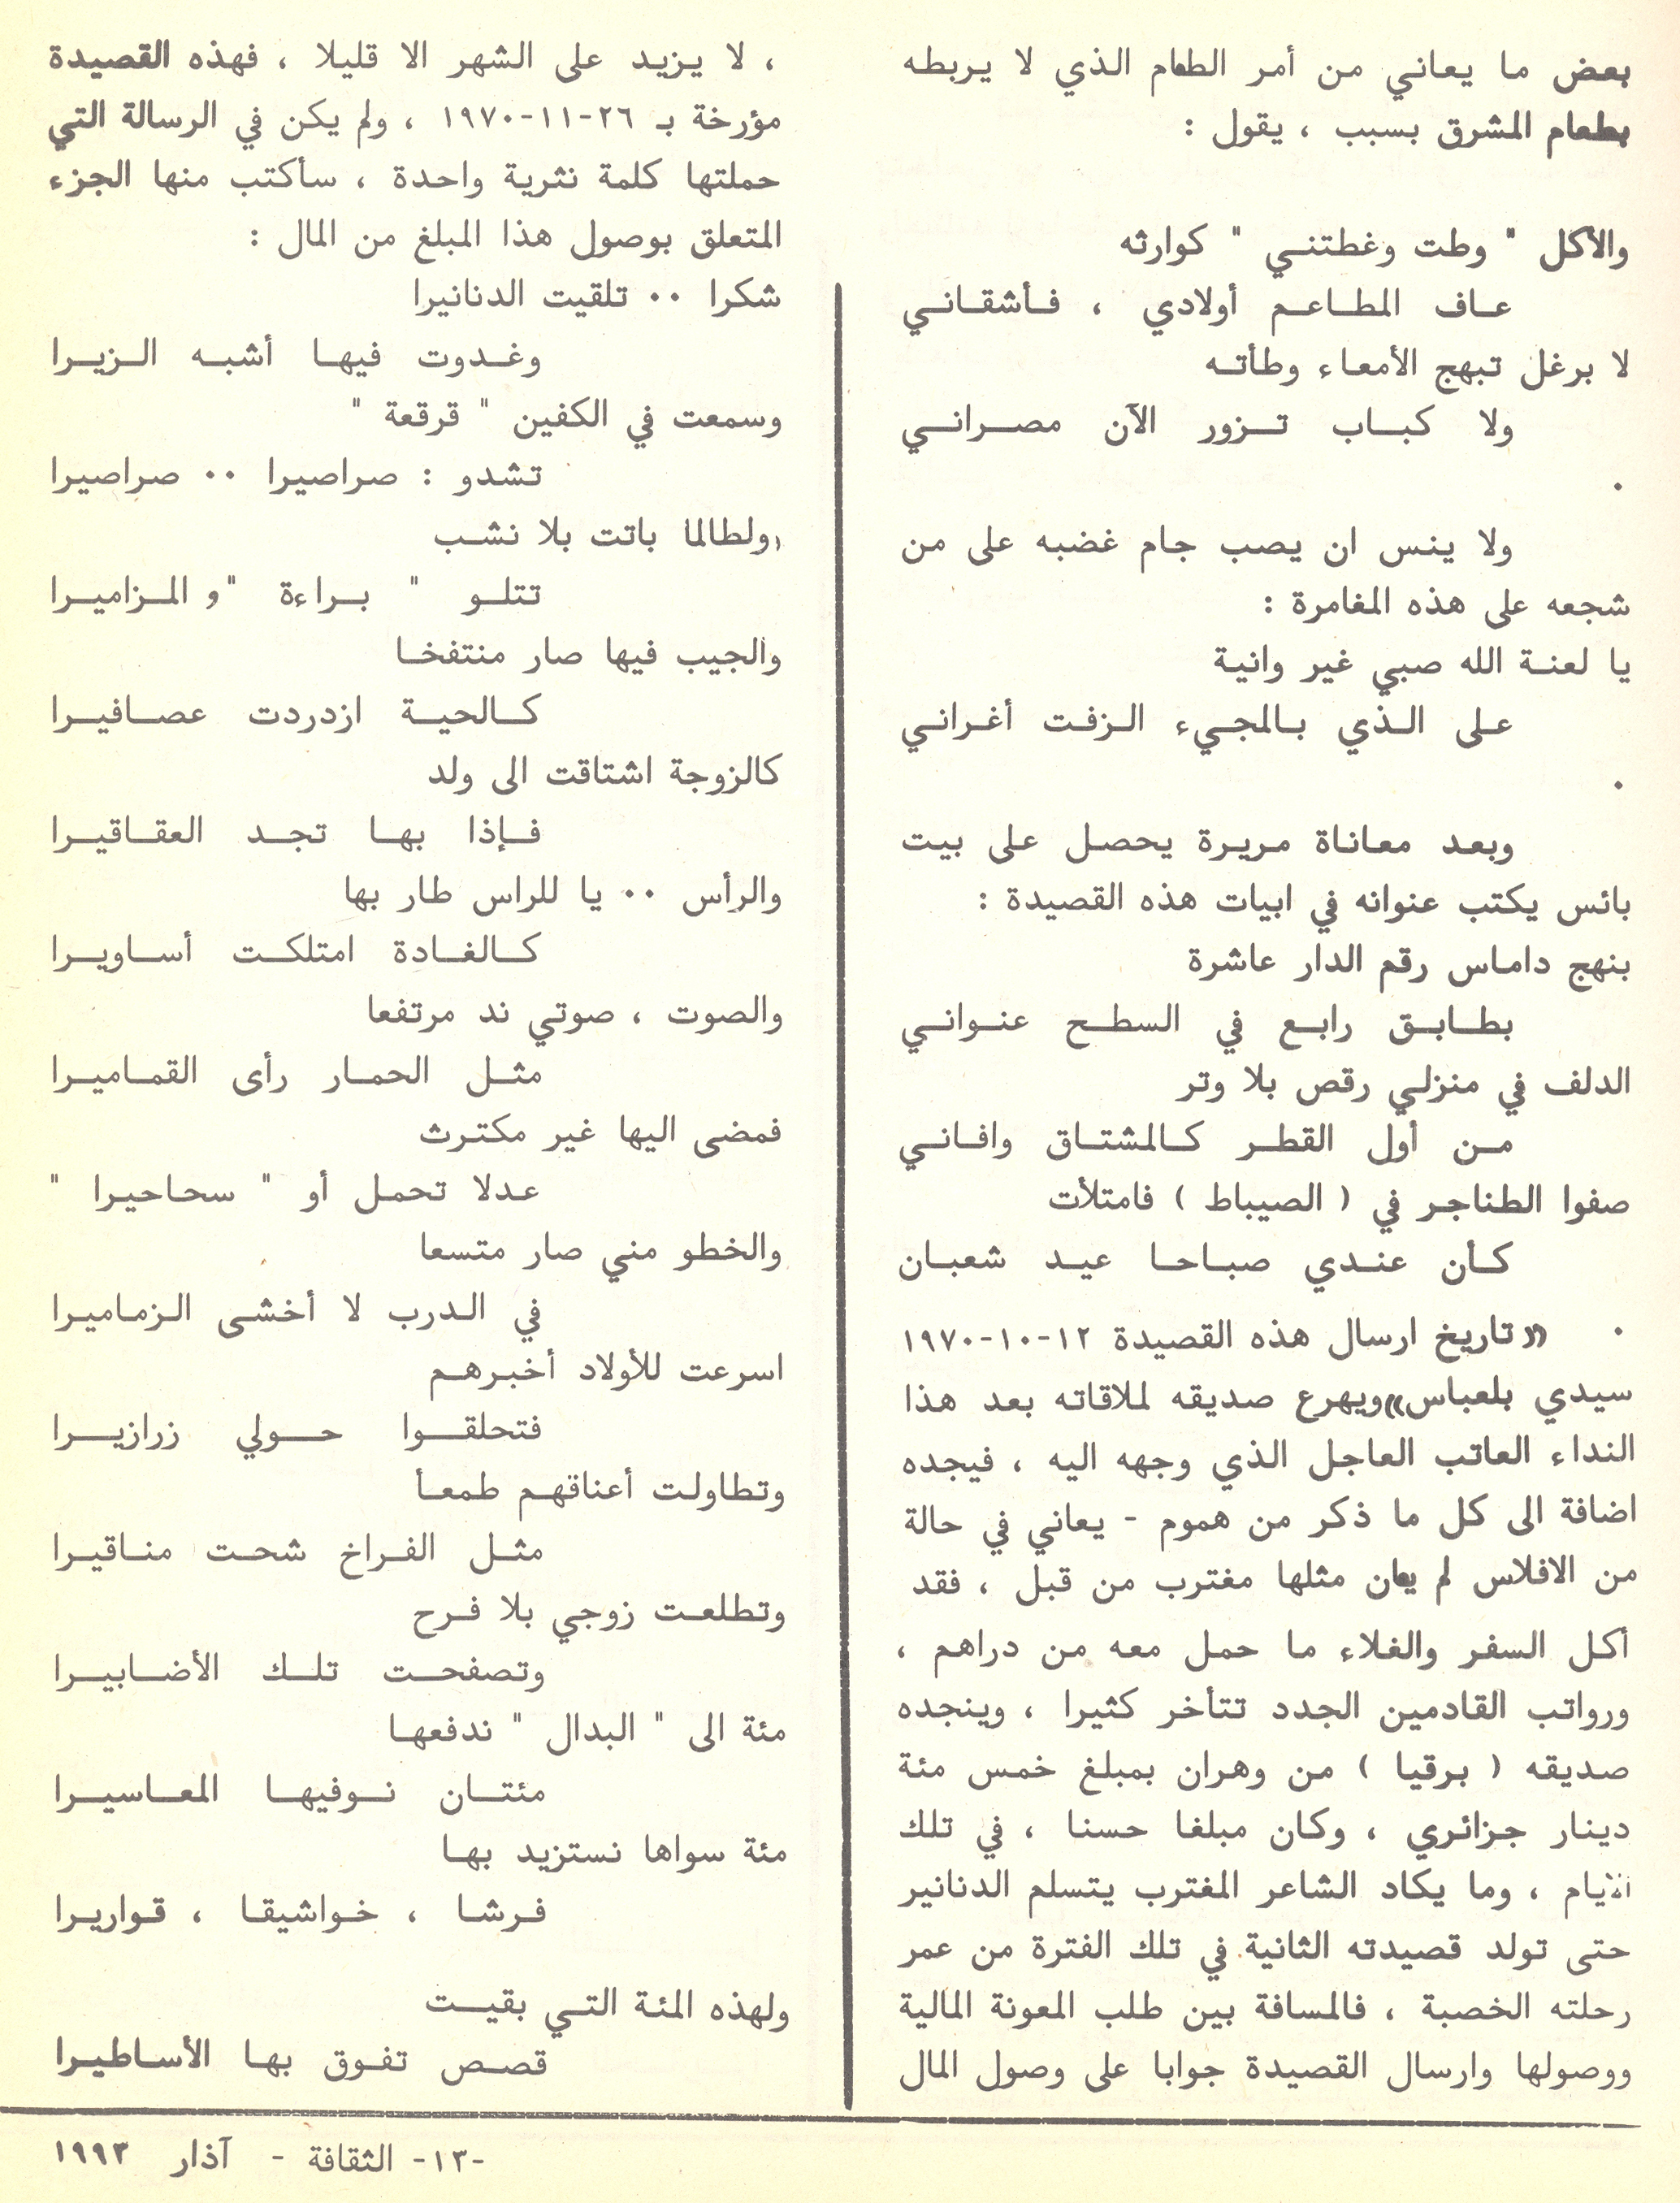 بعض ما يعاني من أمر الطعام الذي لا يربطه
بطعام المشرق بسبب ، يقول :
والأكل " وطت وغطتني " كوارثه
عاف المطاعم أولادي ، فأشقاني
لا برغل تبهج الأمعاء وطأته
ولا كباب تزور الآن مصراني
.
ولا ينس ان يصب جام غضبه على من
شجعه على هذه المغامرة :
يا لعنة الله صبي غير وانية
على الذي بالمجيء الزفت أغراني
.
وبعد معاناة مريرة يحصل على بيت
بائس يكتب عنوانه في ابيات هذه القصيدة :
بنهج داماس رقم الدار عاشرة
بطابق رابع في السطح عنواني
الدلف في منزلي رقص بلا وتر
من أول القطر كالمشتاق وافاني
صفوا الطناجر في ( الصيباط ) فامتلأت
كأن عندي صباحا عيد شعبان
. «تاريخ ارسال هذه القصيدة ١٢-١٠-١٩٧٠
سيدي بلعباس»ويهرع صديقه لملاقاته بعد هذا
النداء العاتب العاجل الذي وجهه اليه ، فيجده
اضافة الى كل ما ذكر من هموم - يعاني في حالة
من الافلاس لم يعان مثلها مغترب من قبل ، فقد
أكل السفر والغلاء ما حمل معه من دراهم ،
ورواتب القادمين الجدد تتأخر كثيرا ، وينجده
صديقه ( برقيا ) من وهران بمبلغ خمس مئة
دينار جزائري ، وكان مبلغا حسنا ، في تلك
الأيام ، وما يكاد الشاعر المغترب يتسلم الدنانير
حتى تولد قصيدته الثانية في تلك الفترة من عمر
رحلته الخصبة ، فالمسافة بين طلب المعونة المالية
ووصولها وارسال القصيدة جوابا على وصول المال
، لا يزيد على الشهر الا قليلا ، فهذه القصيدة
مؤرخة بـ ٢٦-١١-١٩٧٠ ، ولم يكن في الرسالة التي
حملتها كلمة نثرية واحدة ، سأكتب منها الجزء
المتعلق بوصول هذا المبلغ من المال :
شكرا .. تلقيت الدنانيرا
وغدوت فيها أشبه الزيرا
وسمعت في الكفين " قرقعة "
تشدو : صراصيرا .. صراصيرا
ولطالما باتت بلا نشب
تتلو " براءة "و المزاميرا
والجيب فيها صار منتفخا
كالحية ازدردت عصافيرا
كالزوجة اشتاقت الى ولد
فإذا بها تجد العقاقيرا
والرأس .. يا للراس طار بها
كالغادة امتلكت أساويرا
والصوت ، صوتي ند مرتفعا
مثل الحمار رأى القماميرا
فمضى اليها غير مكترث
عدلا تحمل أو " سحاحيرا "
والخطو مني صار متسعا
في الدرب لا أخشى الزماميرا
اسرعت للأولاد أخبرهم
فتحلقوا حولي زرازيرا
وتطاولت أعناقهم طمعأ
مثل الفراخ شحت مناقيرا
وتطلعت زوجي بلا فرح
وتصفحت تلك الأضابيرا
مئة الى " البدال " ندفعها
مئتان نوفيها المعاسيرا
مئة سواها نستزيد بها
فرشا ، خواشيقا ، قواريرا
ولهذه المئة التي بقيت
قصص تفوق بها الأساطيرا
-١٣- الثقافة - آذار ١٩٩٣